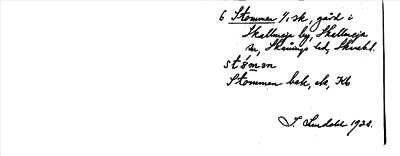 6 Stommen 1/1 sk, gård i
Skallmeja by, Skallmeja
sn, Skånings hd, Skarabl.
stó̀mən
Stommen bek, ek, Kb
J. Lindahl 1928.